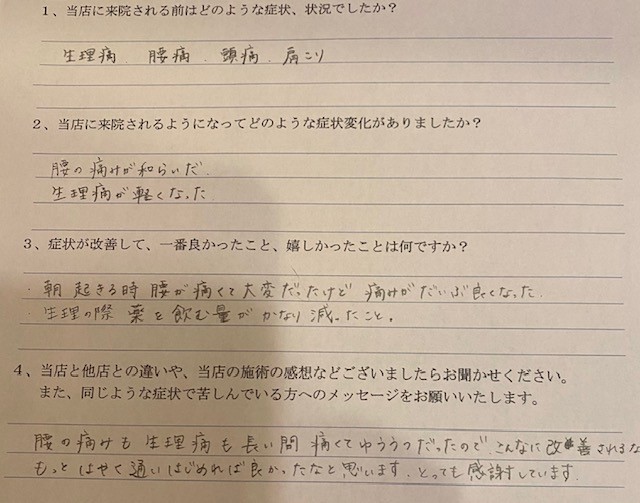 1、当店に来院される前はどのような症状、状況でしたか？
生理痛．腰痛．頭痛．肩こり
2、当店に来院されるようになってどのような症状変化がありましたか？
腰の痛みが和らいだ．
生理痛が軽くなった
3、症状が改善して、一番良かったこと、嬉しかったことは何ですか？
・朝起きる時腰が痛くて大変だったけど 痛みがだいぶ良くなった．
・生理の際 薬を飲む量がかなり減ったこと。
4、当店と他店との違いや、当店の施術の感想などございましたらお聞かせください。
また、同じような症状で苦しんでいる方へのメッセージをお願いいたします。
腰の痛みも生理痛も長い間痛くてゆううつだったので、こんなに改善されるな
もっとはやく通いはじめれば良かったなと思います．とっても感謝しています．